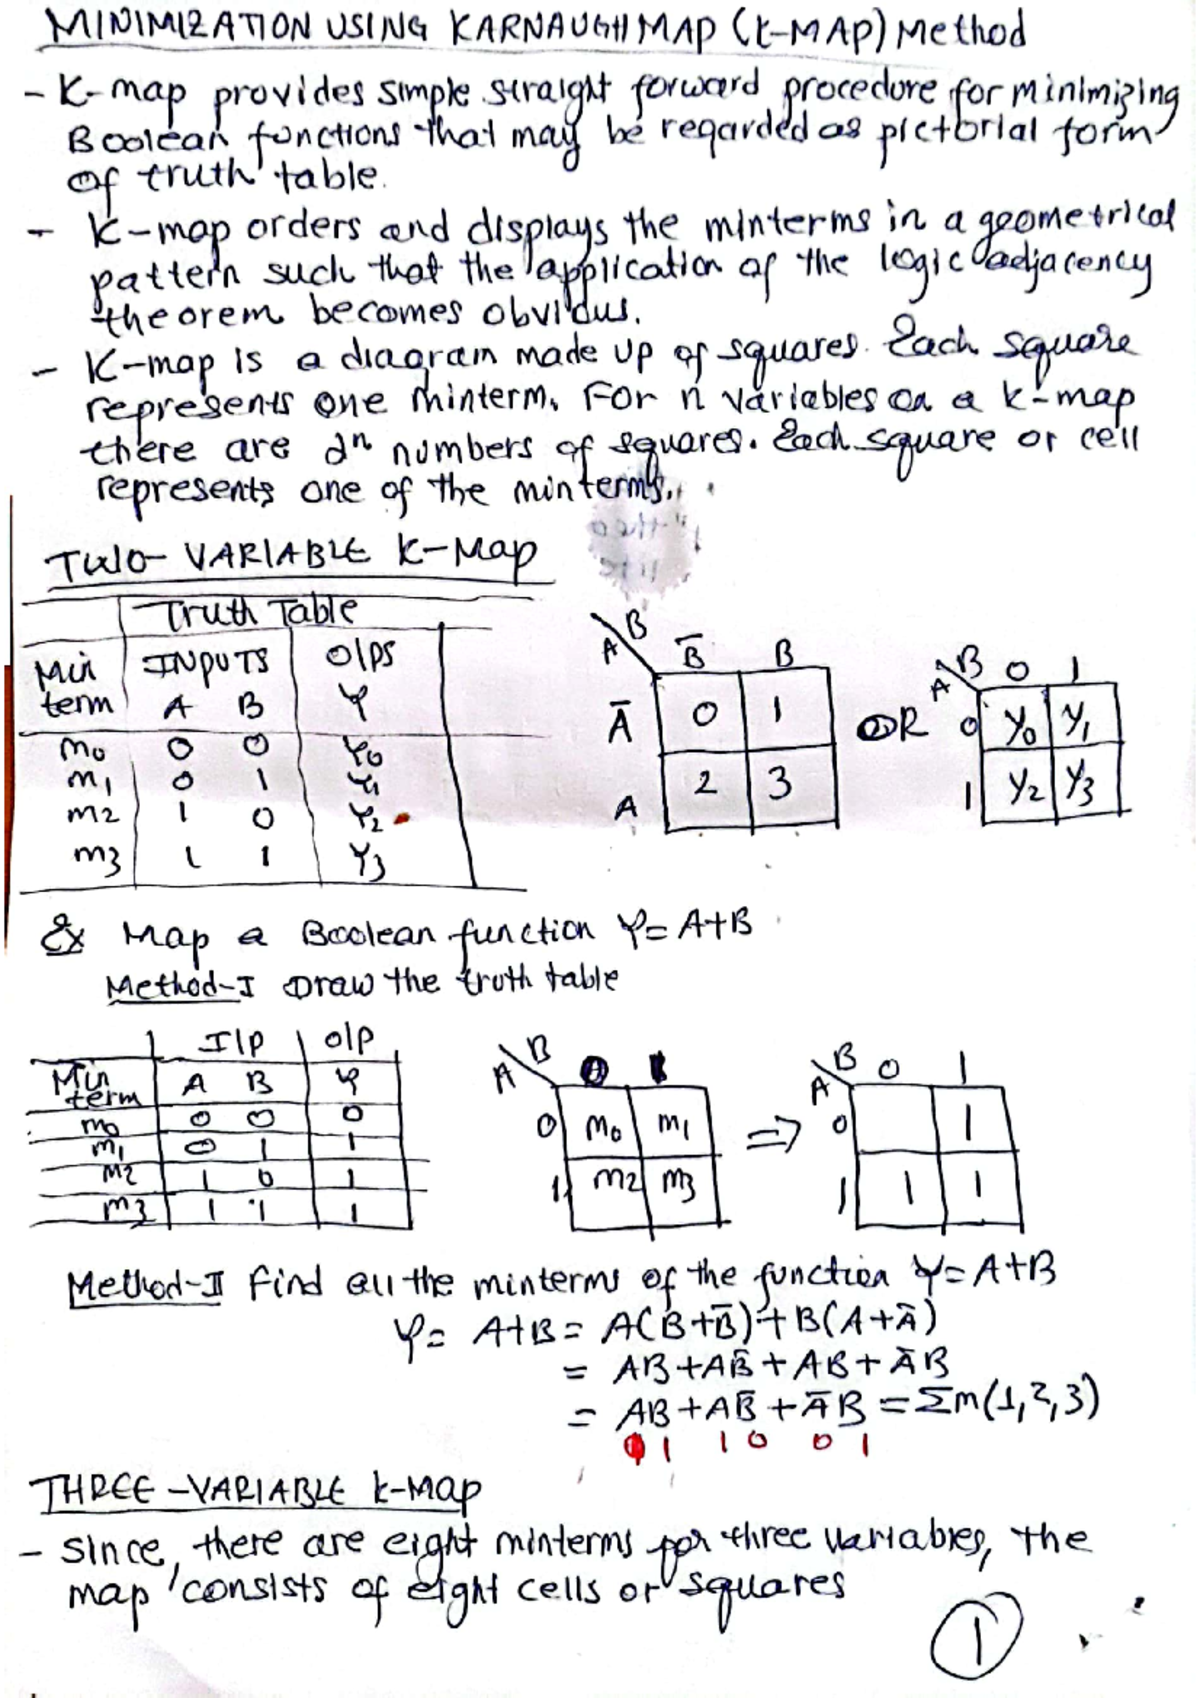 MINIMIZATION USING KARNAUGH MAP (K-MAP) Method
- K-map provides simple straight forward procedure for minimizing
Boolean functions that may be regarded as pictorial form
of truth table.
- K-map orders and displays the minterms in a geometrical
pattern such that the application of the logic adjacency
theorem becomes obvious.
- K-map is a diagram made up of squares. Each square
represents one minterm. For n variables on a k-map
there are 2ⁿ numbers of squares. Each square or cell
represents one of the minterms.
TWO-VARIABLE K-Map
Truth Table
Min term INPUTS O/PS
A B Y
m0 0 0 Y0
m1 0 1 Y1
m2 1 0 Y2
m3 1 1 Y3
A B B̄ B
Ā 0 1
A 2 3
OR
A B 0 1
0 Y0 Y1
1 Y2 Y3
Ex Map a Boolean function Y=A+B
Method-I Draw the truth table
Min term I/P O/P
A B Y
m0 0 0 0
m1 0 1 1
m2 1 0 1
m3 1 1 1
A B 0 1
0 m0 m1
1 m2 m3
⇒
A B 0 1
0 1
1 1 1
Method-II Find all the minterms of the function Y=A+B
Y= A+B = A(B+B̄)+B(A+Ā)
= AB+AB̄+AB+ĀB
= AB+AB̄+ĀB = Σm(1,2,3)
1 1 0 0 1
THREE-VARIABLE k-Map
- Since, there are eight minterms for three variables, the
map consists of eight cells or squares
1